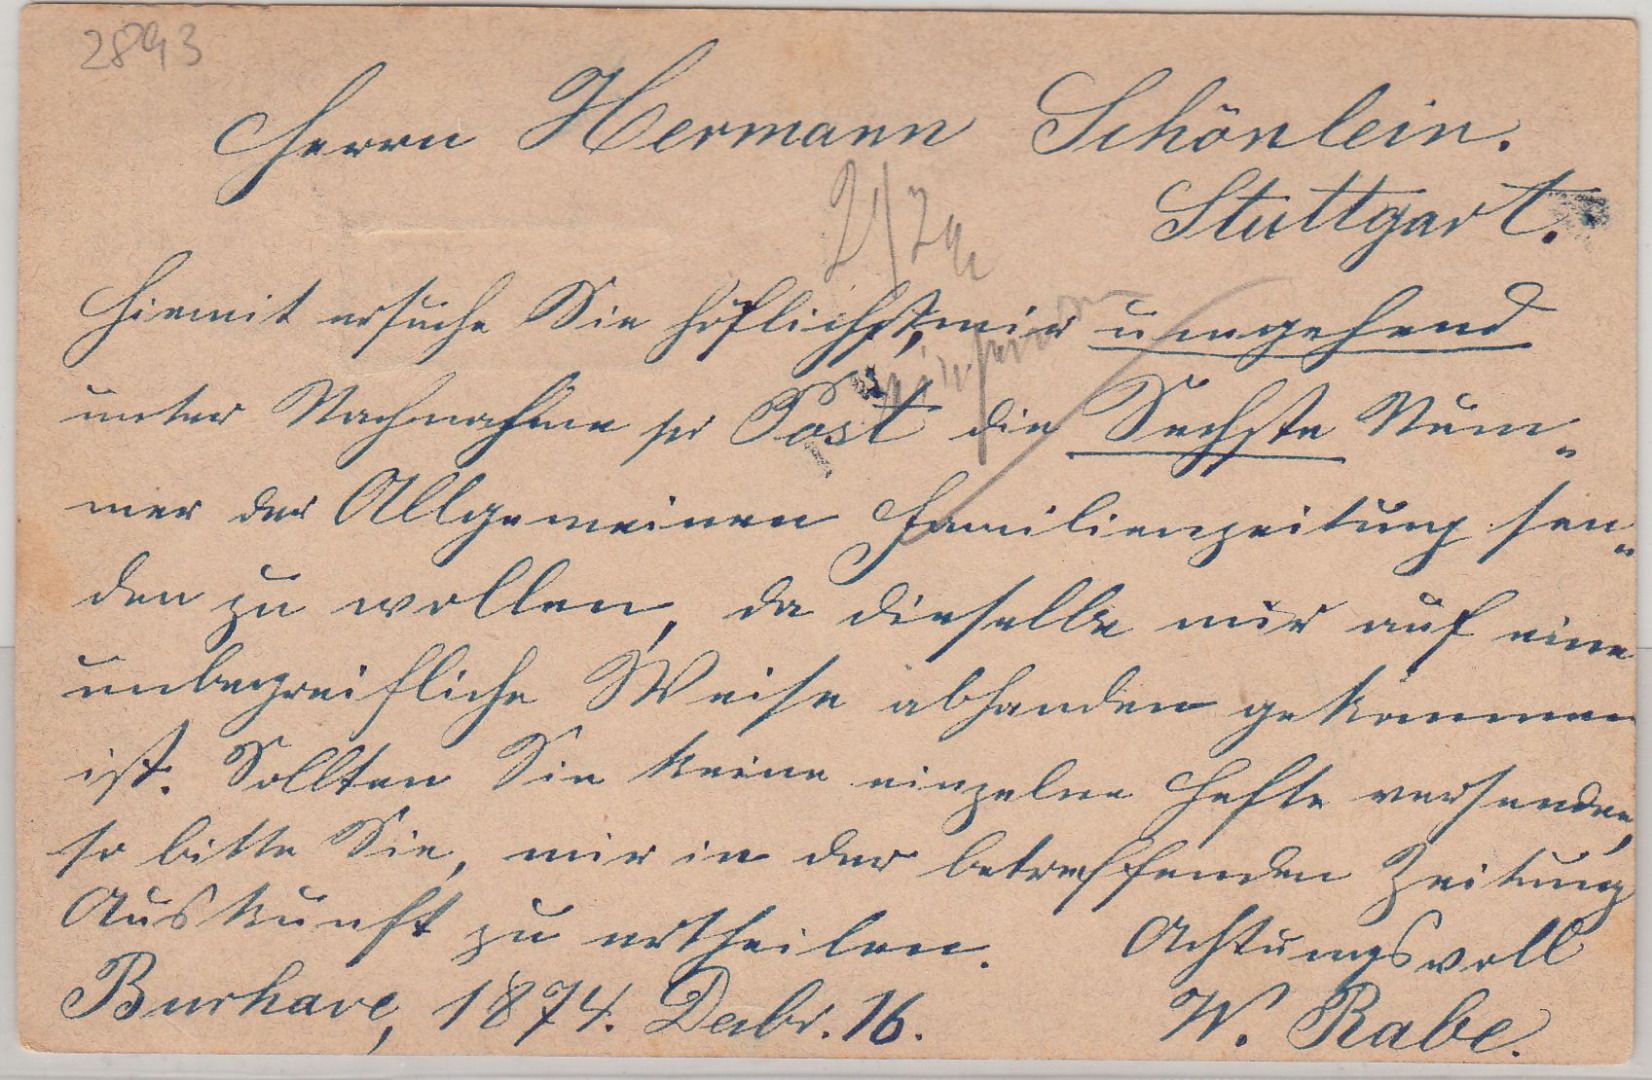 2893
Herrn Hermann Schönlein.
Stuttgart.
2/24
Hiemit ersuche Sie höflichst, mir umgehend
unter Nachnahme pr Post die Sechste Num-
mer der Allgemeinen Familienzeitung sen-
den zu wollen, da dieselbe mir auf eine
unbegreifliche Weise abhanden gekommen
ist. Sollten Sie keine einzelne Hefte versenden,
so bitte Sie, mir in der betreffenden Zeitung
Auskunft zu ertheilen. Achtungsvoll
Burhave, 1874. Decbr. 16. W. Rabe.